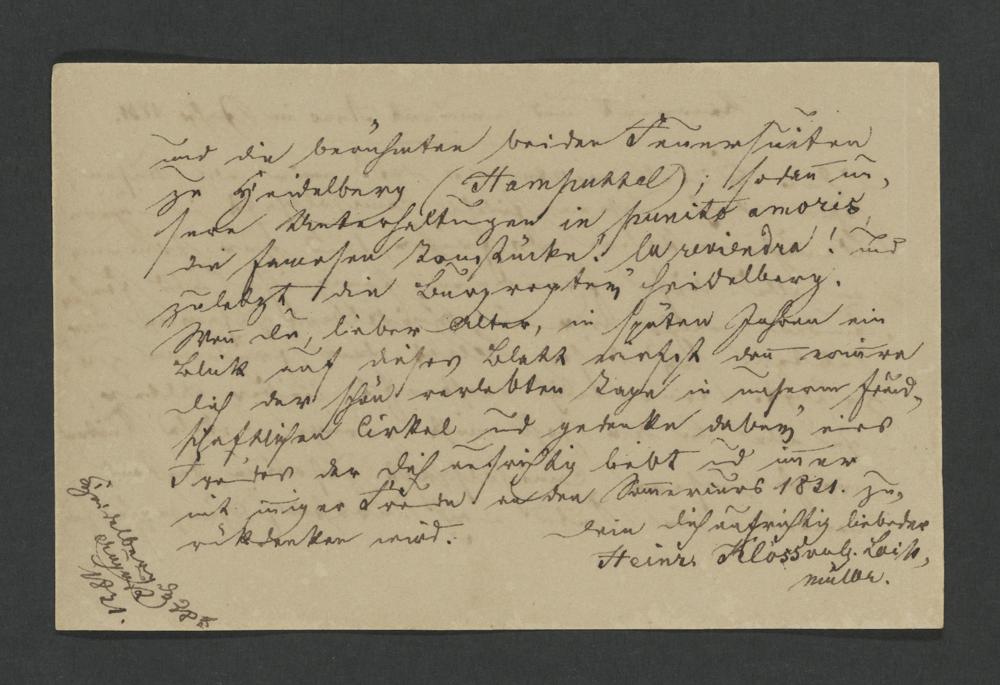 und die berühmten beiden Feuersuiten
zu Heidelberg (Hampuhkel); sodañ un-
sere Unterhaltungen in puncto amoris,
die famosen Tonstücke! la reviendra! und
zuletzt die Heidelberg.
Weñ du, lieber Alter, in späten Jahren ein
Blick auf dieses Blatt wirfst deñ eriñre
dich der schön verlebten Tage in unserm freund-
schaftlichen Cirkel und gedenke dabey eines
Freundes der dich aufrichtig liebt und imer
mit iniger Freude an den Somercurs 1821. zu-
rükdenken wird.
Dein dich aufrichtig liebender
Heinr. Klöss
müller.
Heidelberg d. 28
August
1821.